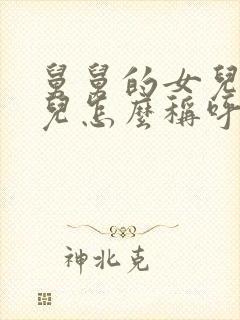 舅舅的女兒
兒怎麼稱呼
神北克